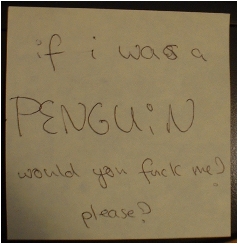 if i was a
PENGUiN
would you fuck me?
please?